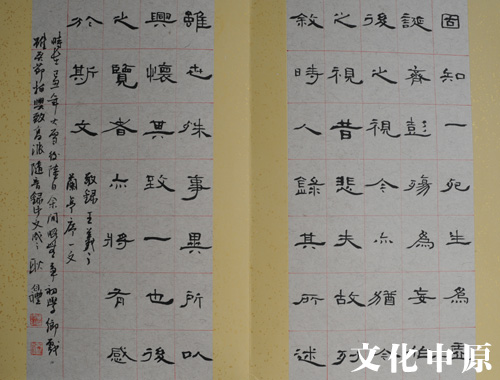 固知一死生為虛
誕齊彭殤為妄作
後之視今亦猶今
之視昔悲夫故列
敘時人錄其所述
雖世殊事異所以
興懷其致一也後
之覽者亦將有感
於斯文
敬錄王羲之
蘭亭序一文
文化中原